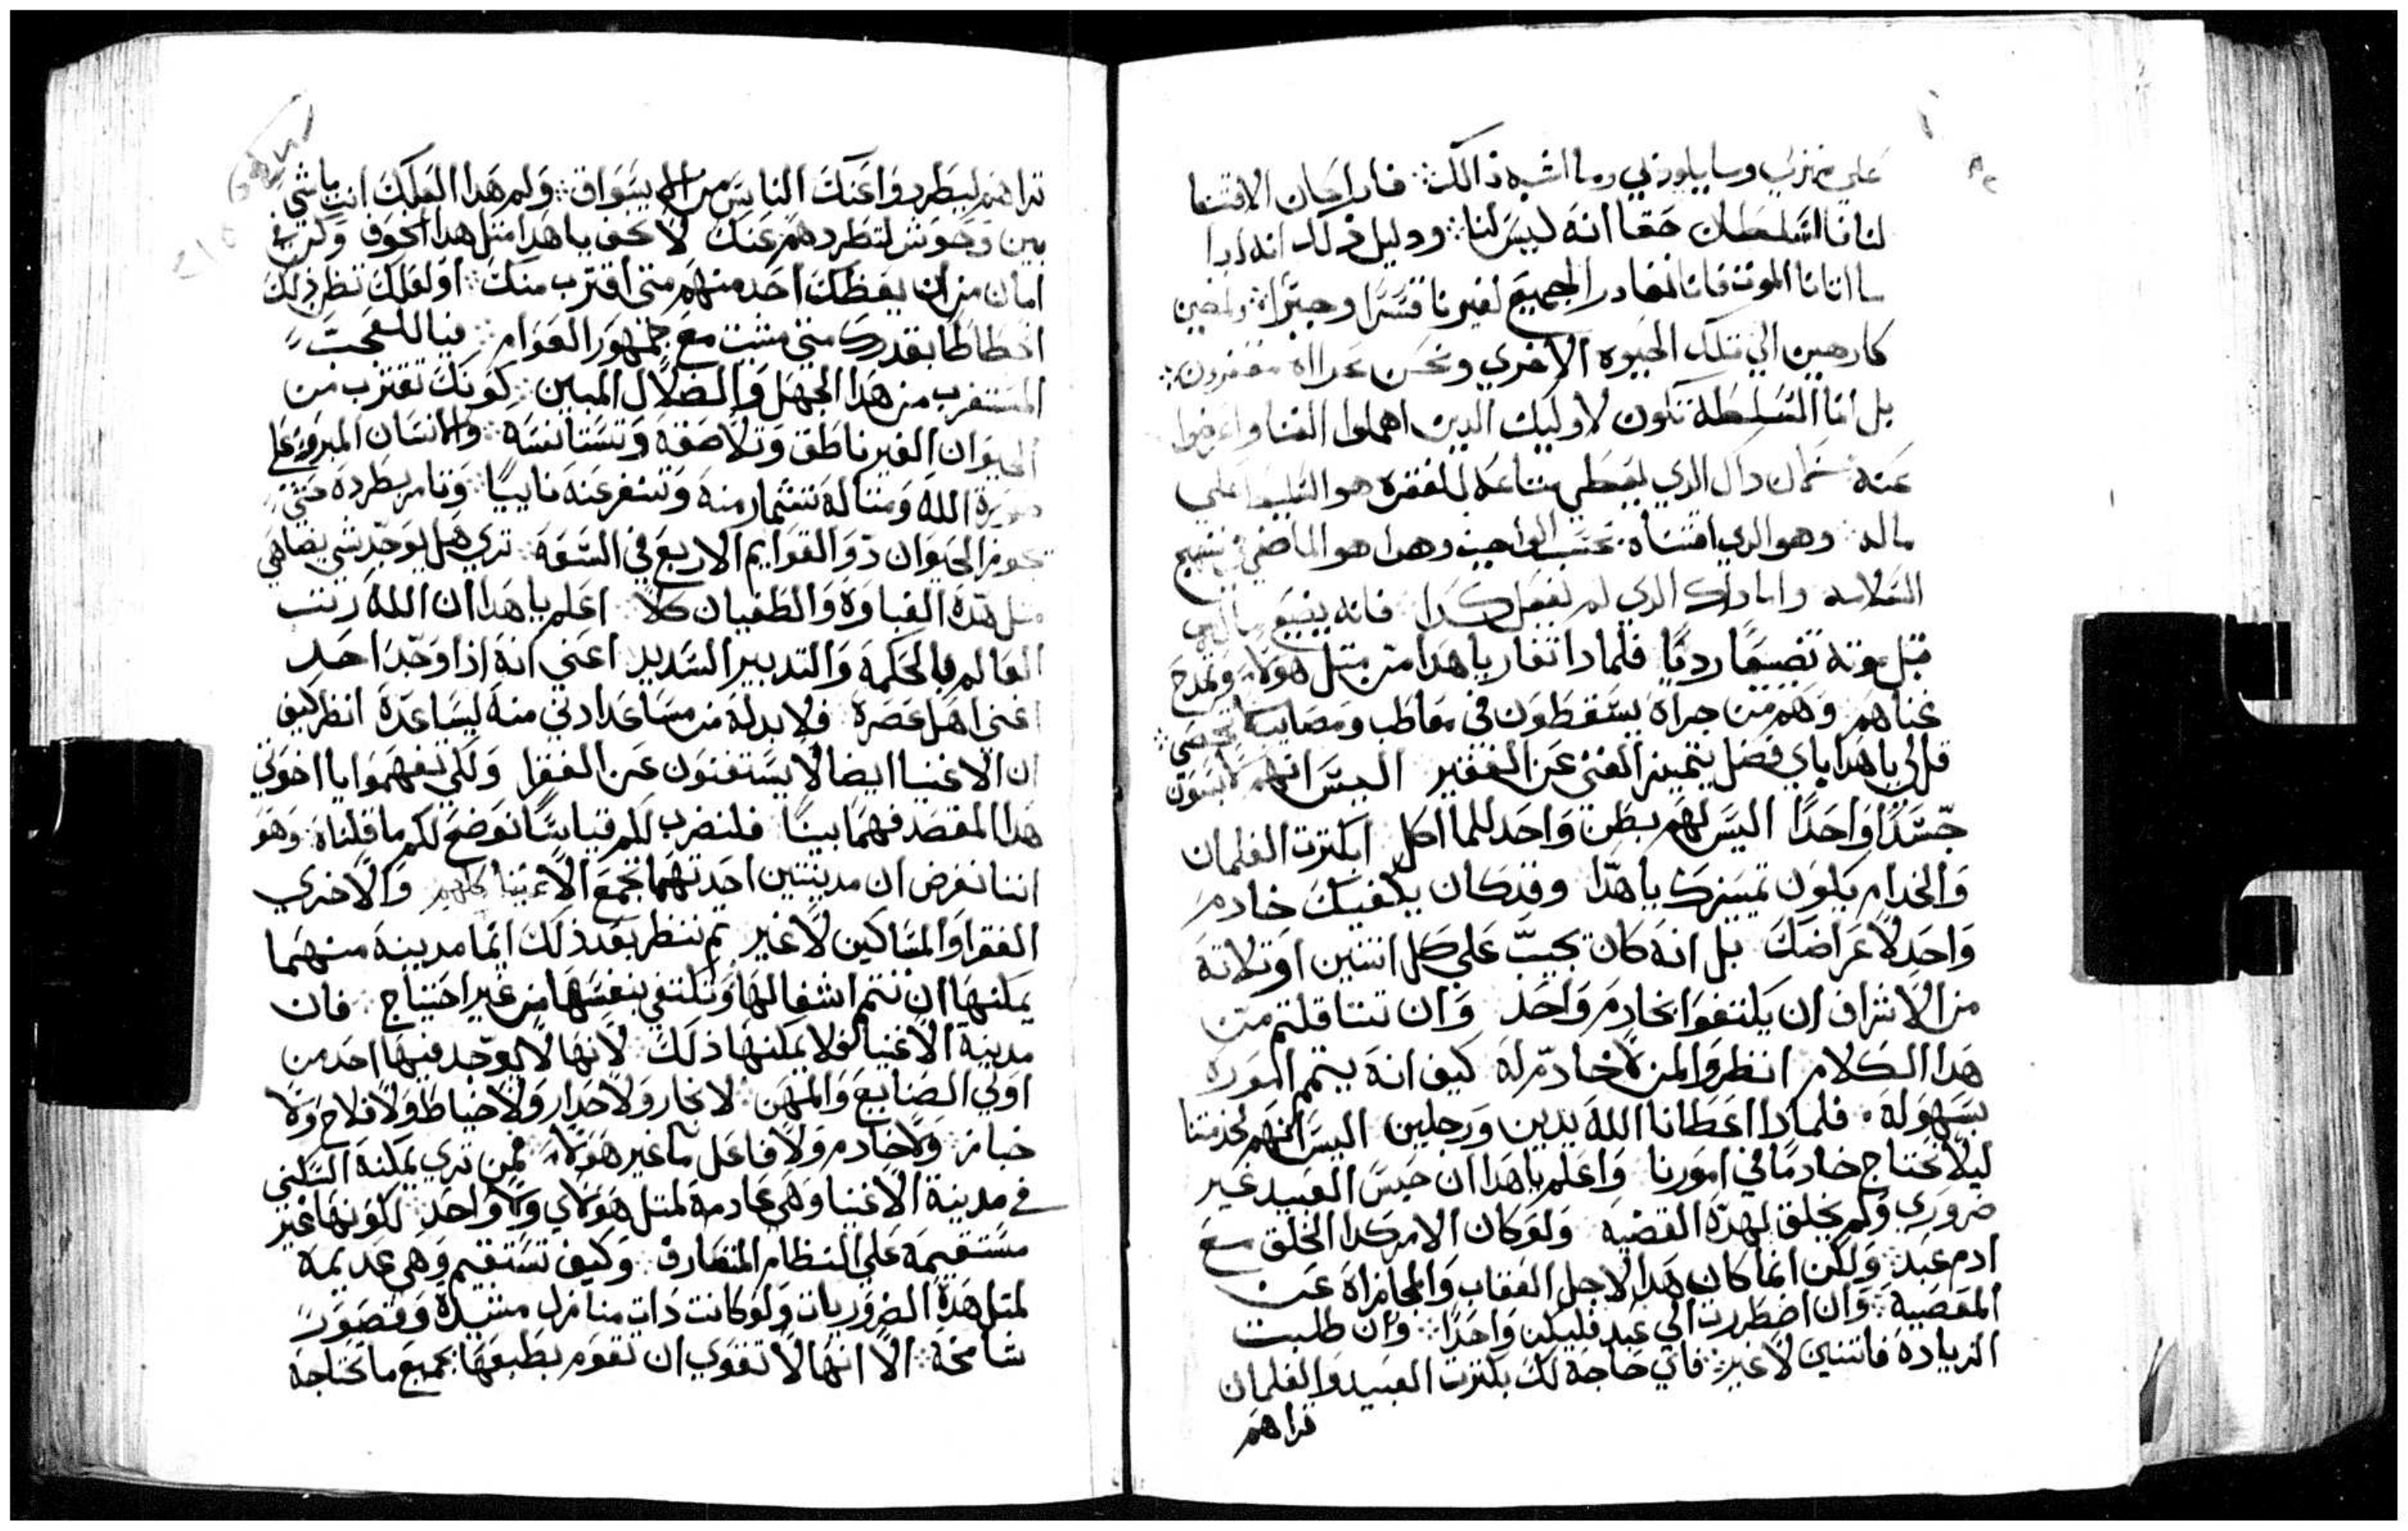 علي ضرب وسايلوذلي وما اشبه ذالك: فاذا كان الاقتنا
لنا فالتسلطك حقا انه ليس لنا: ودليل ذلك انه اذا
ما اتانا الموت فاننا نغادر الجميع لغيرنا قسرًا وجبرًا: ونمضين
كارهين الي تلك الحيوه الاخري ونحن عراه مفتقرون:
بل انما التسلطه تكون لاوليك الدين اهملوا الغنا واعرضوا
عنه: لان داك الدي يعطي متاعه للفقره هو المتسلط علي
ماله: وهو الدي اقتناه بحسب الواجب وهدا هو الماضي في نهج
السلامه واما داك الدي لم يفعل كدا فانه يضيع ماله
قبل موته تضيعًا رديًا فلمادا تغار يا هدا من متل هولا وتمدح
غناهم وهم من جراه يسقطون في معاطب ومصايب لا تحصي:
قل لي يا هدا باي فضل يتميز الغني عن الفقير اليس انهم لابسون
جسدًا واحدًا اليس لهم بطن واحد للمااكل ابكترت الغلمان
والخدام يكون تميزك يا هدا وقد كان يكفيك خادم
واحد لاغراضك بل انه كان يجب علي كل اتنين او تلاتة
من الاشراف ان يكتفوا بخادم واحد وان تتتاقلتم من
هدا الكلام انظروا لمن لا خادم له كيف انه يتمم اموره
بسهوله. فلمادا اعطانا الله يدين ورجلين اليس انهم لخدمتنا
ليلا نحتاج خادمًا في امورنا واعلم يا هدا ان جنس العبيد غير
ضروري ولم يخلق لهده القضيه ولو كان الامر كدا لخلق مع
ادم عبد: ولكن انما كان هدا لاجل العقاب والمجازاه عن
المعصيه: وان اضطررت الي عبد فليكن واحدًا: وان طلبت
الزيادة فاتنين لا غير: فاي حاجة لك بكترت العبيد والغلمان
تراهم
تراهم ليطردوا عنك الناس من الاسواق: ولم هدا العلك انت ماشي
بين وحوش لتطردهم عنك لا تخف يا هدا متل هدا الخوف وكن في
امان من ان يعظك احد منهم متي اقترب منك: او لعلك تظن ذلك
انحطاطًا بقدرك متي مشيت مع جمهور العوام: فيا للعجب
المستغرب من هدا الجهل والضلال المبين: كونك تقترب من
الحيوان الغير ناطق وتلاصقه وتستانسه: والانسان المبروء علي
صورة الله ومتاله تشمار منه وتنفر عنه نابيًا: وتامر بطرده حتي
نحو الحيوان دو القوايم الاربع في السعه: تري هل يوجد شي يضاهي
متل هده الغباوة والطغيان كلا: اعلم يا هدا ان الله رتب
العالم بالحكمة والتدبير السديد اعني انه اذا وجد احد
اغني اهل عصره فلا بد له من مساعد ادني منه ليساعده انظر كيف
ان الاغنيا ايضا لا يستغنون عن الفقرا ولكي تفهموا يا اخوتي
هدا المقصد فهمًا بينًا فلنضرب لكم قياسًا نوضح لكم ما قلناه وهو
اننا نفرض ان مدينتين احدتهما تجمع الاغنيا كلهم والاخري
الفقرا والمساكين لا غير ثم ننظر بعد ذلك ايما مدينة منهما
يمكنها ان تتمم اشغالها وتكتفي بنفسها من غير احتياج: فان
مدينة الاغنيا فلا يمكنها ذلك لانها لا يوجد فيها احد من
اولي الصنايع والمهن: لا نجار ولا حداد ولا خياط ولا فلاح ولا
خباز ولا خادم ولا فاعل ما غير هولا: فمن تري يمكنه السكني
في مدينة الاغنيا وهي عادمة لمتل هولاي ولا واحد لكونها غير
مستقيمة علي النظام المتعارف: وكيف تستقيم وهي عديمة
لمتل هدة الضروريات ولو كانت دات منازل مشيدة وقصور
شامخة: الا انها لا تقوي ان تقوم بطبعها بجميع ما تحتاجه